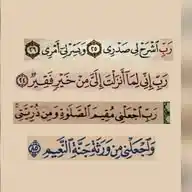 رَبِّ اشْرَحْ لِي صَدْرِي ٢٥ وَيَسِّرْ لِي أَمْرِي ٢٦
رَبِّ إِنِّي لِمَا أَنزَلْتَ إِلَيَّ مِنْ خَيْرٍ فَقِيرٌ ٢٤
رَبِّ اجْعَلْنِي مُقِيمَ الصَّلَوٰةِ وَمِن ذُرِّيَّتِي
وَاجْعَلْنِي مِن وَرَثَةِ جَنَّةِ النَّعِيمِ ٨٥